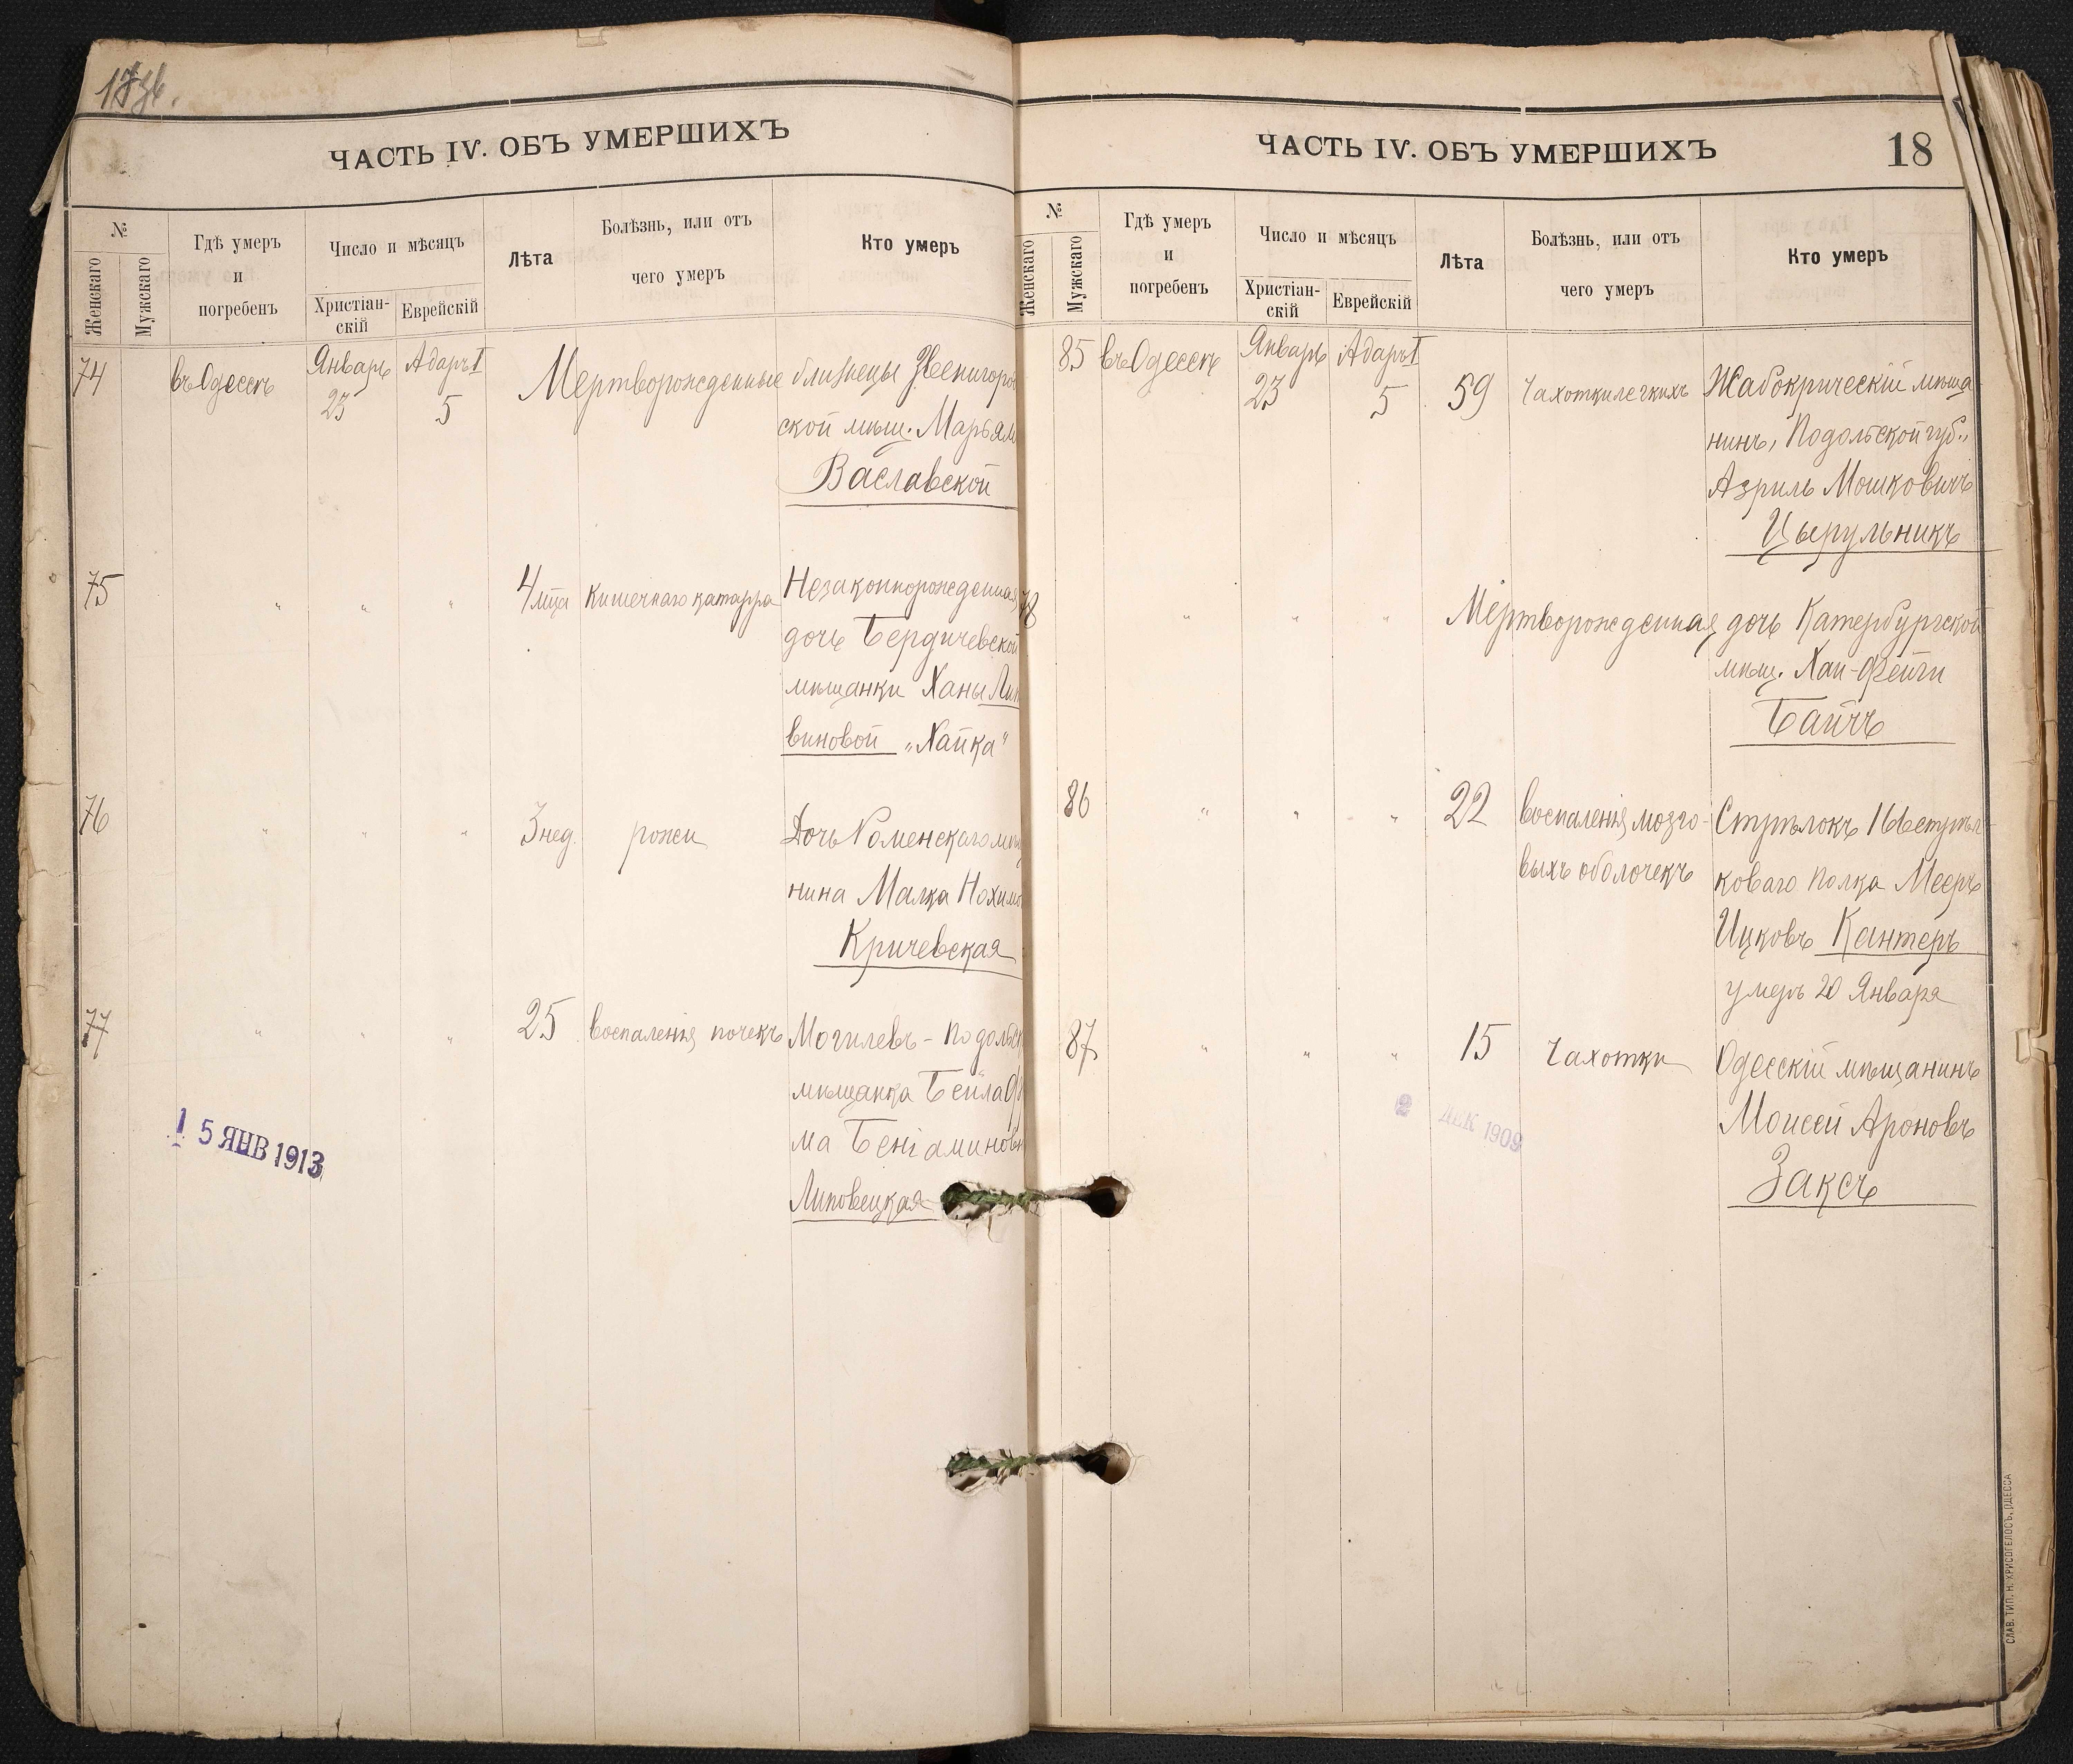 ЧАСТЬ IV. ОБЪ УМЕРШИХЪ
№
Женскаго
Мужскаго
Гдѣ умеръ
и
погребенъ
Число и мѣсяцъ
Христіан-
скій
Еврейскій
Лѣта
Болѣзнь, или отъ
чего умеръ
Кто умеръ
74 въ Одессѣ Январь 23 Адаръ I 5 Мертворожденные близнецы Звенигород
ской мѣщ. Марьям
Ваславской
75 " " " 4 мца кишечнаго катарра Незаконнорожденная
дочь Бердичевской
мѣщанки Ханы Лит
виновой „Хайка“
76 " " " 3 нед. рожи Дочь Роменскаго мѣщ
нина Малка Нохимо
Кричевская
77 " " " 25 воспаленія почекъ Могилевъ-Подольск
мѣщанка Бейла
ма Беніаминовн
Липовецкая
15 ЯНВ 1913
ЧАСТЬ IV. ОБЪ УМЕРШИХЪ
18
№
Женскаго
Мужскаго
Гдѣ умеръ
и
погребенъ
Число и мѣсяцъ
Христіан-
скій
Еврейскій
Лѣта
Болѣзнь, или отъ
чего умеръ
Кто умеръ
85 въ Одессѣ Январь 23 Адаръ I 5 59 Чахотки легкихъ Жабокрическій мѣща-
нинъ, Подольской губ.,
Азриль Мошковичъ
Цырульникъ
78 " " " Мертворожденная дочь Катербургской
мѣщ. Хаи-Фейги
Байчъ
86 " " " 22 воспаленія мозго- Стрѣлокъ 16 стрѣл-
выхъ оболочекъ коваго полка Мееръ
Ицковъ Кантеръ
умеръ 20 Января
87 " " " 15 Чахотки Одесскій мѣщанинъ
Моисей Ароновъ
Заксъ
2 ДЕК 1909
СЛАВ. ТИП. Н. ХРИСОГЕЛОСЪ, ОДЕССА